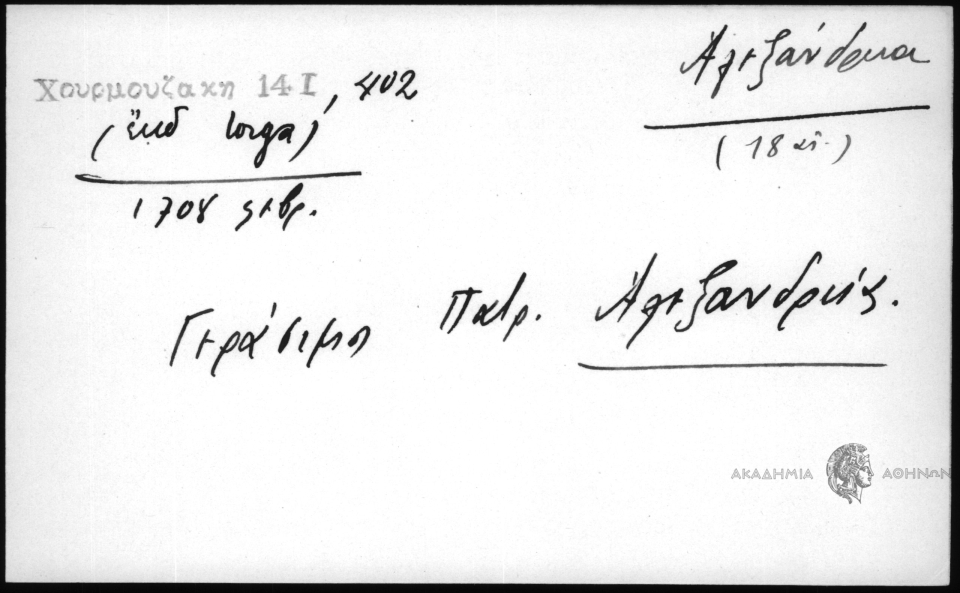 Ἀλεξάνδρεια
(18 αἰ.)
Χουρμουζακη 14 Ι, 402
(ἔκδ Iorga)
1708 φεβρ.
Γεράσιμος Πατρ. Ἀλεξανδρείας.
ΑΚΑΔΗΜΙΑ ΑΘΗΝΩΝ